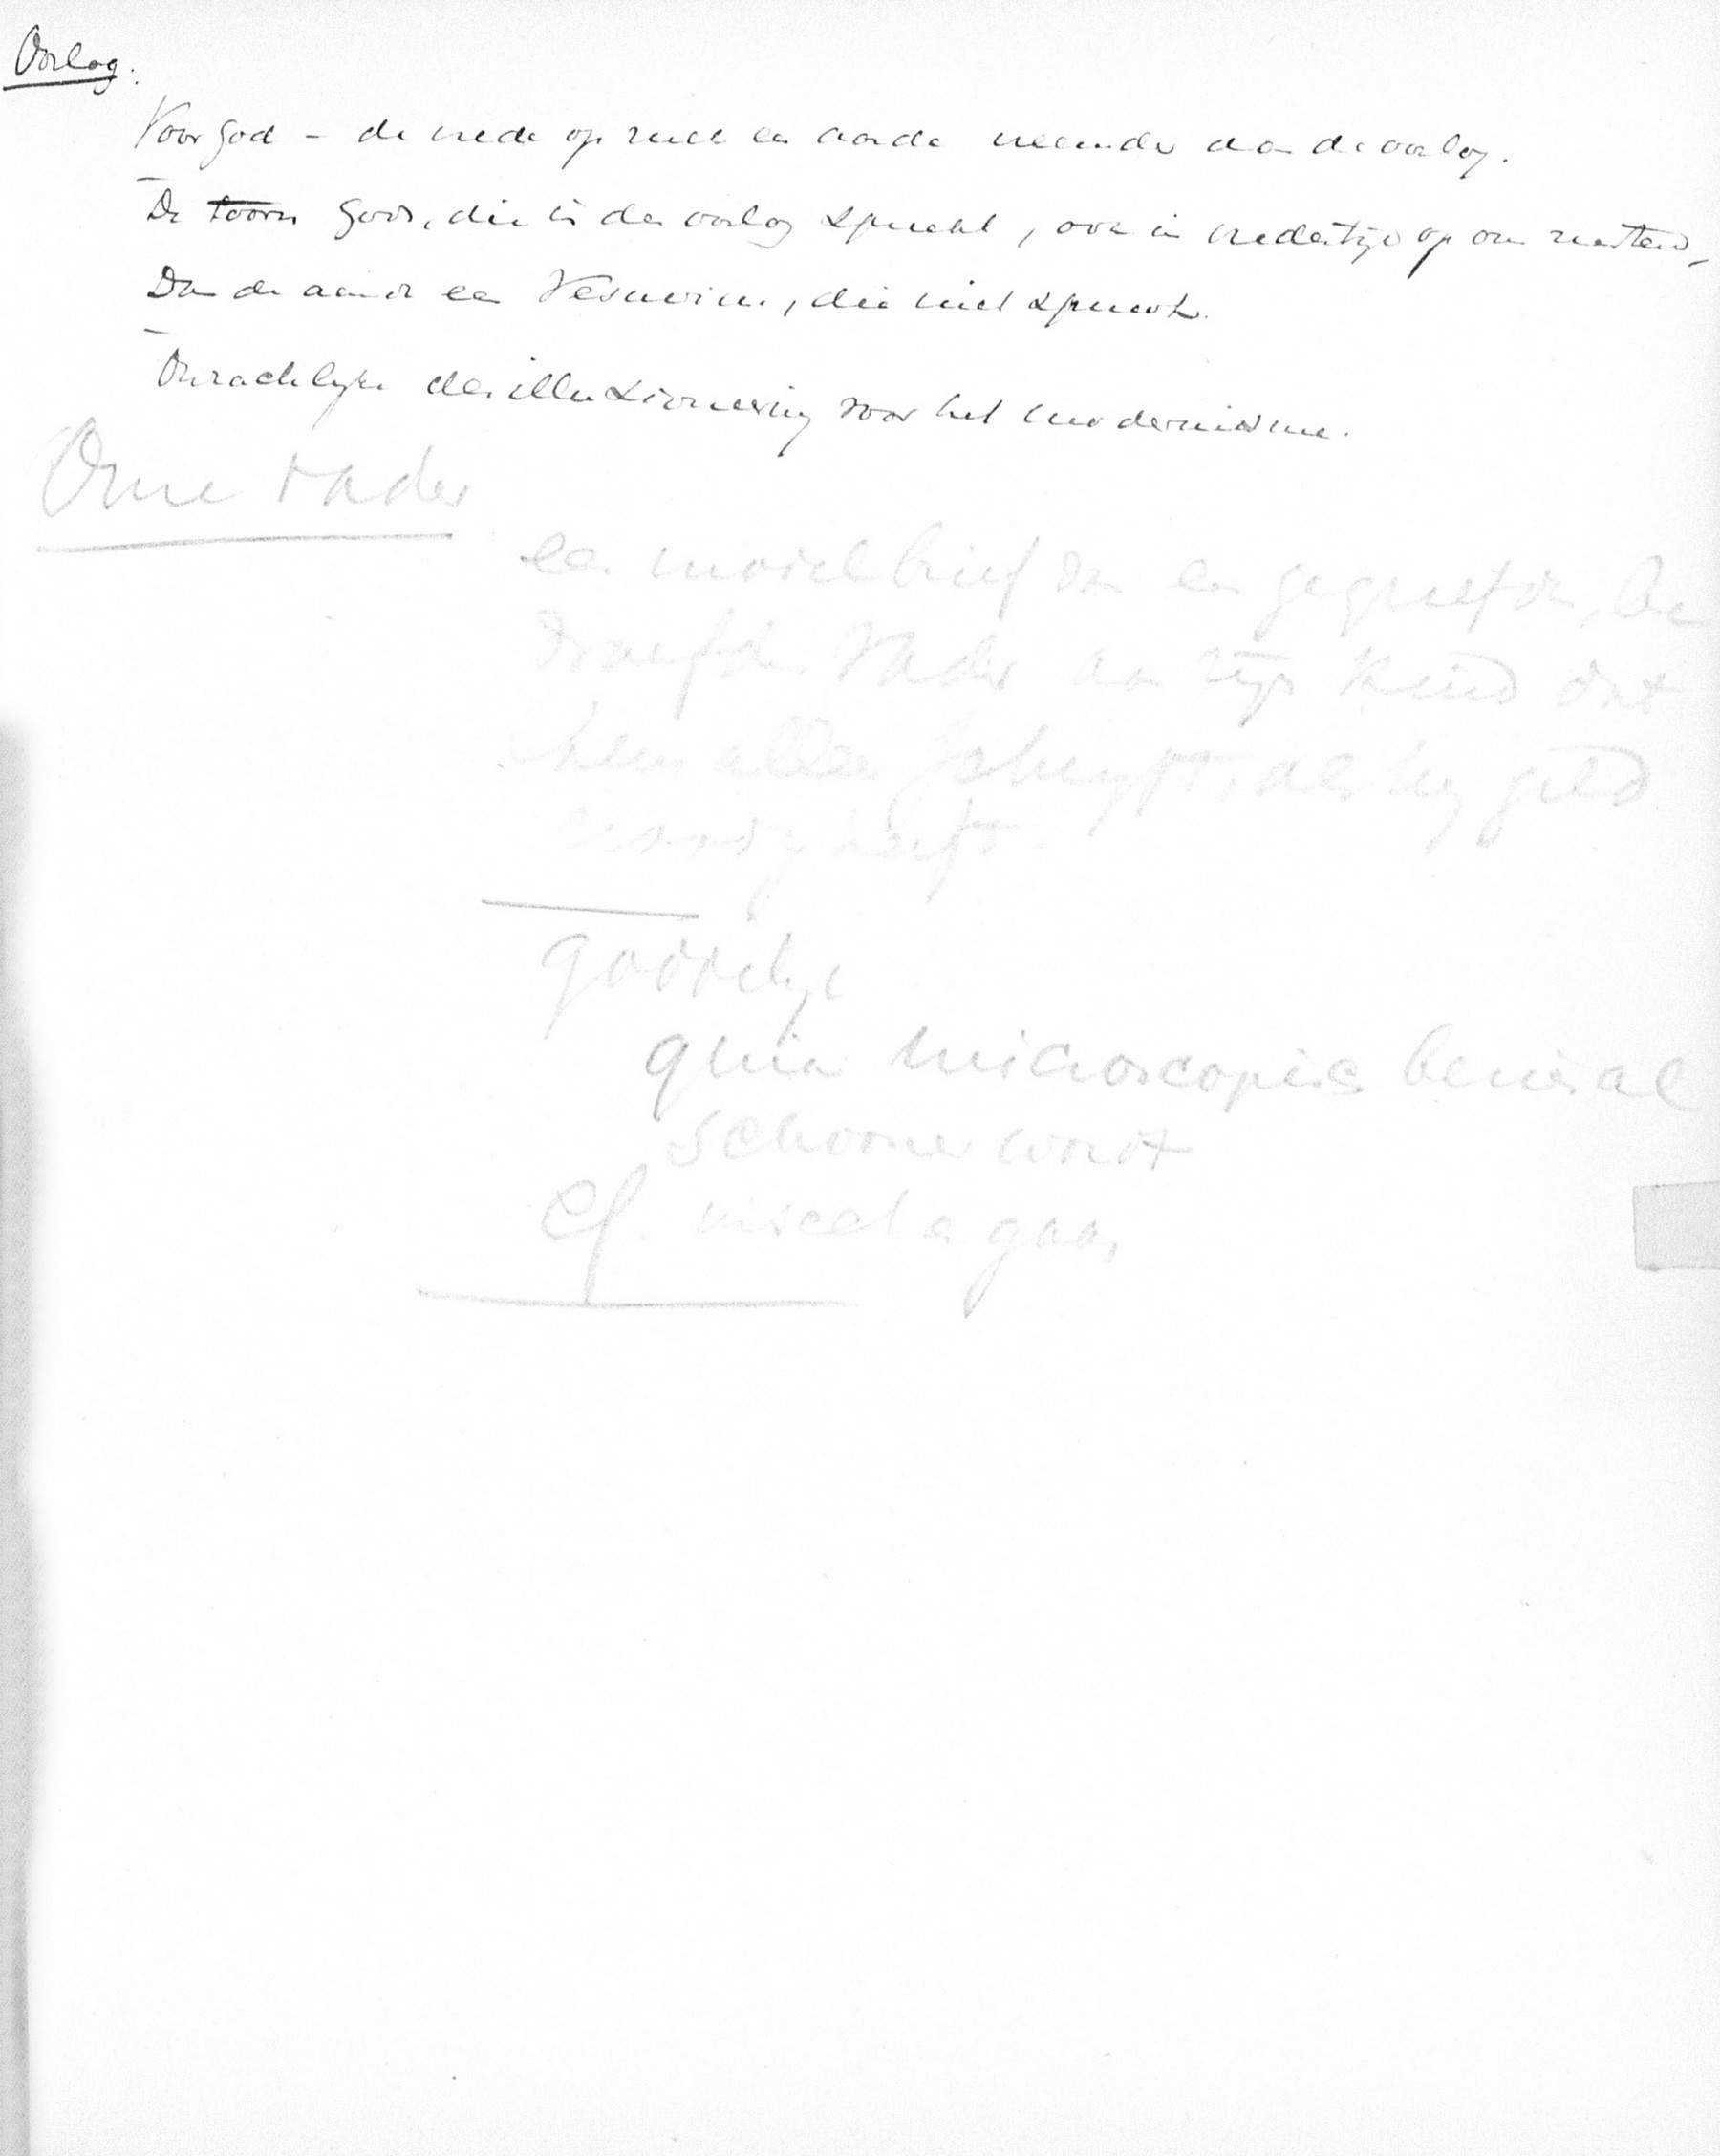 Oorlog:
Voor God – de vrede op zee en aarde vreemder dan de oorlog.
De toorn Gods, die in den oorlog spreekt, ook in vredestijd op ons rustend,
Dan de aarde een Vesuvius, die niet spuwt.
Onzachlijke desillusioneering voor het modernisme.
Onze Vader
een brief van een gegriefden, be
droefden Vader aan zijn kind dat
hem alleen schrijft, als hij geld
noodig heeft.
Goddelijk
quia microscopisch bezien al
schooner wordt
Cf.